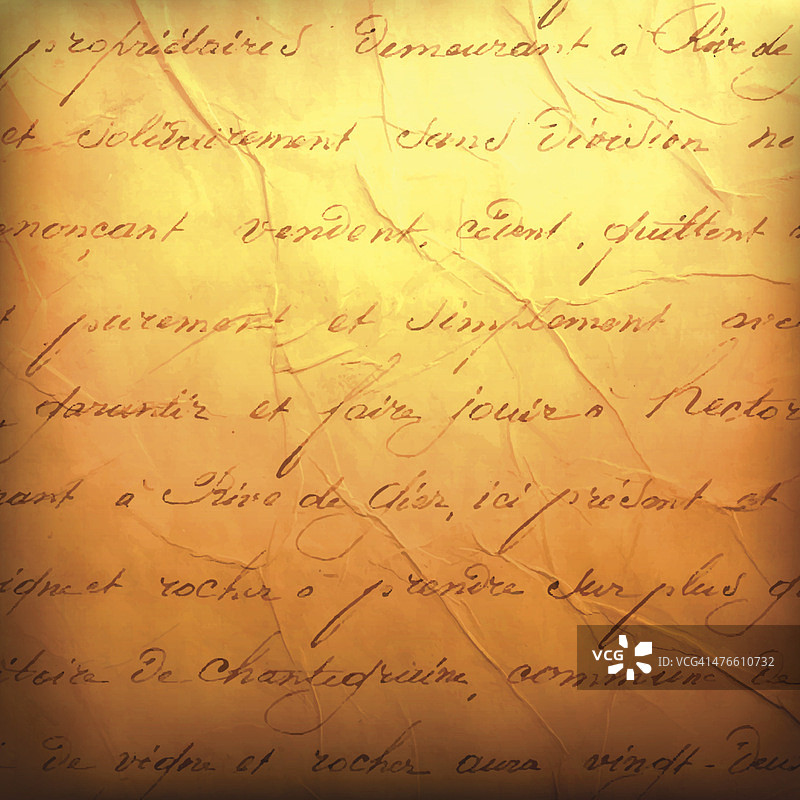 propriétaires demeurant à Rive de
et solidairement sans division ne
nonçant vendent, cèdent, quittent
t purement et simplement avec
garantir et faire jouir à Hector
rant à Rive de Gier, ici présent et
igne et rocher à prendre sur plus g
itoire de Chantegraine, commune de
de vigne et rocher aura vingt-deux
VCG ID: VCG41476610732